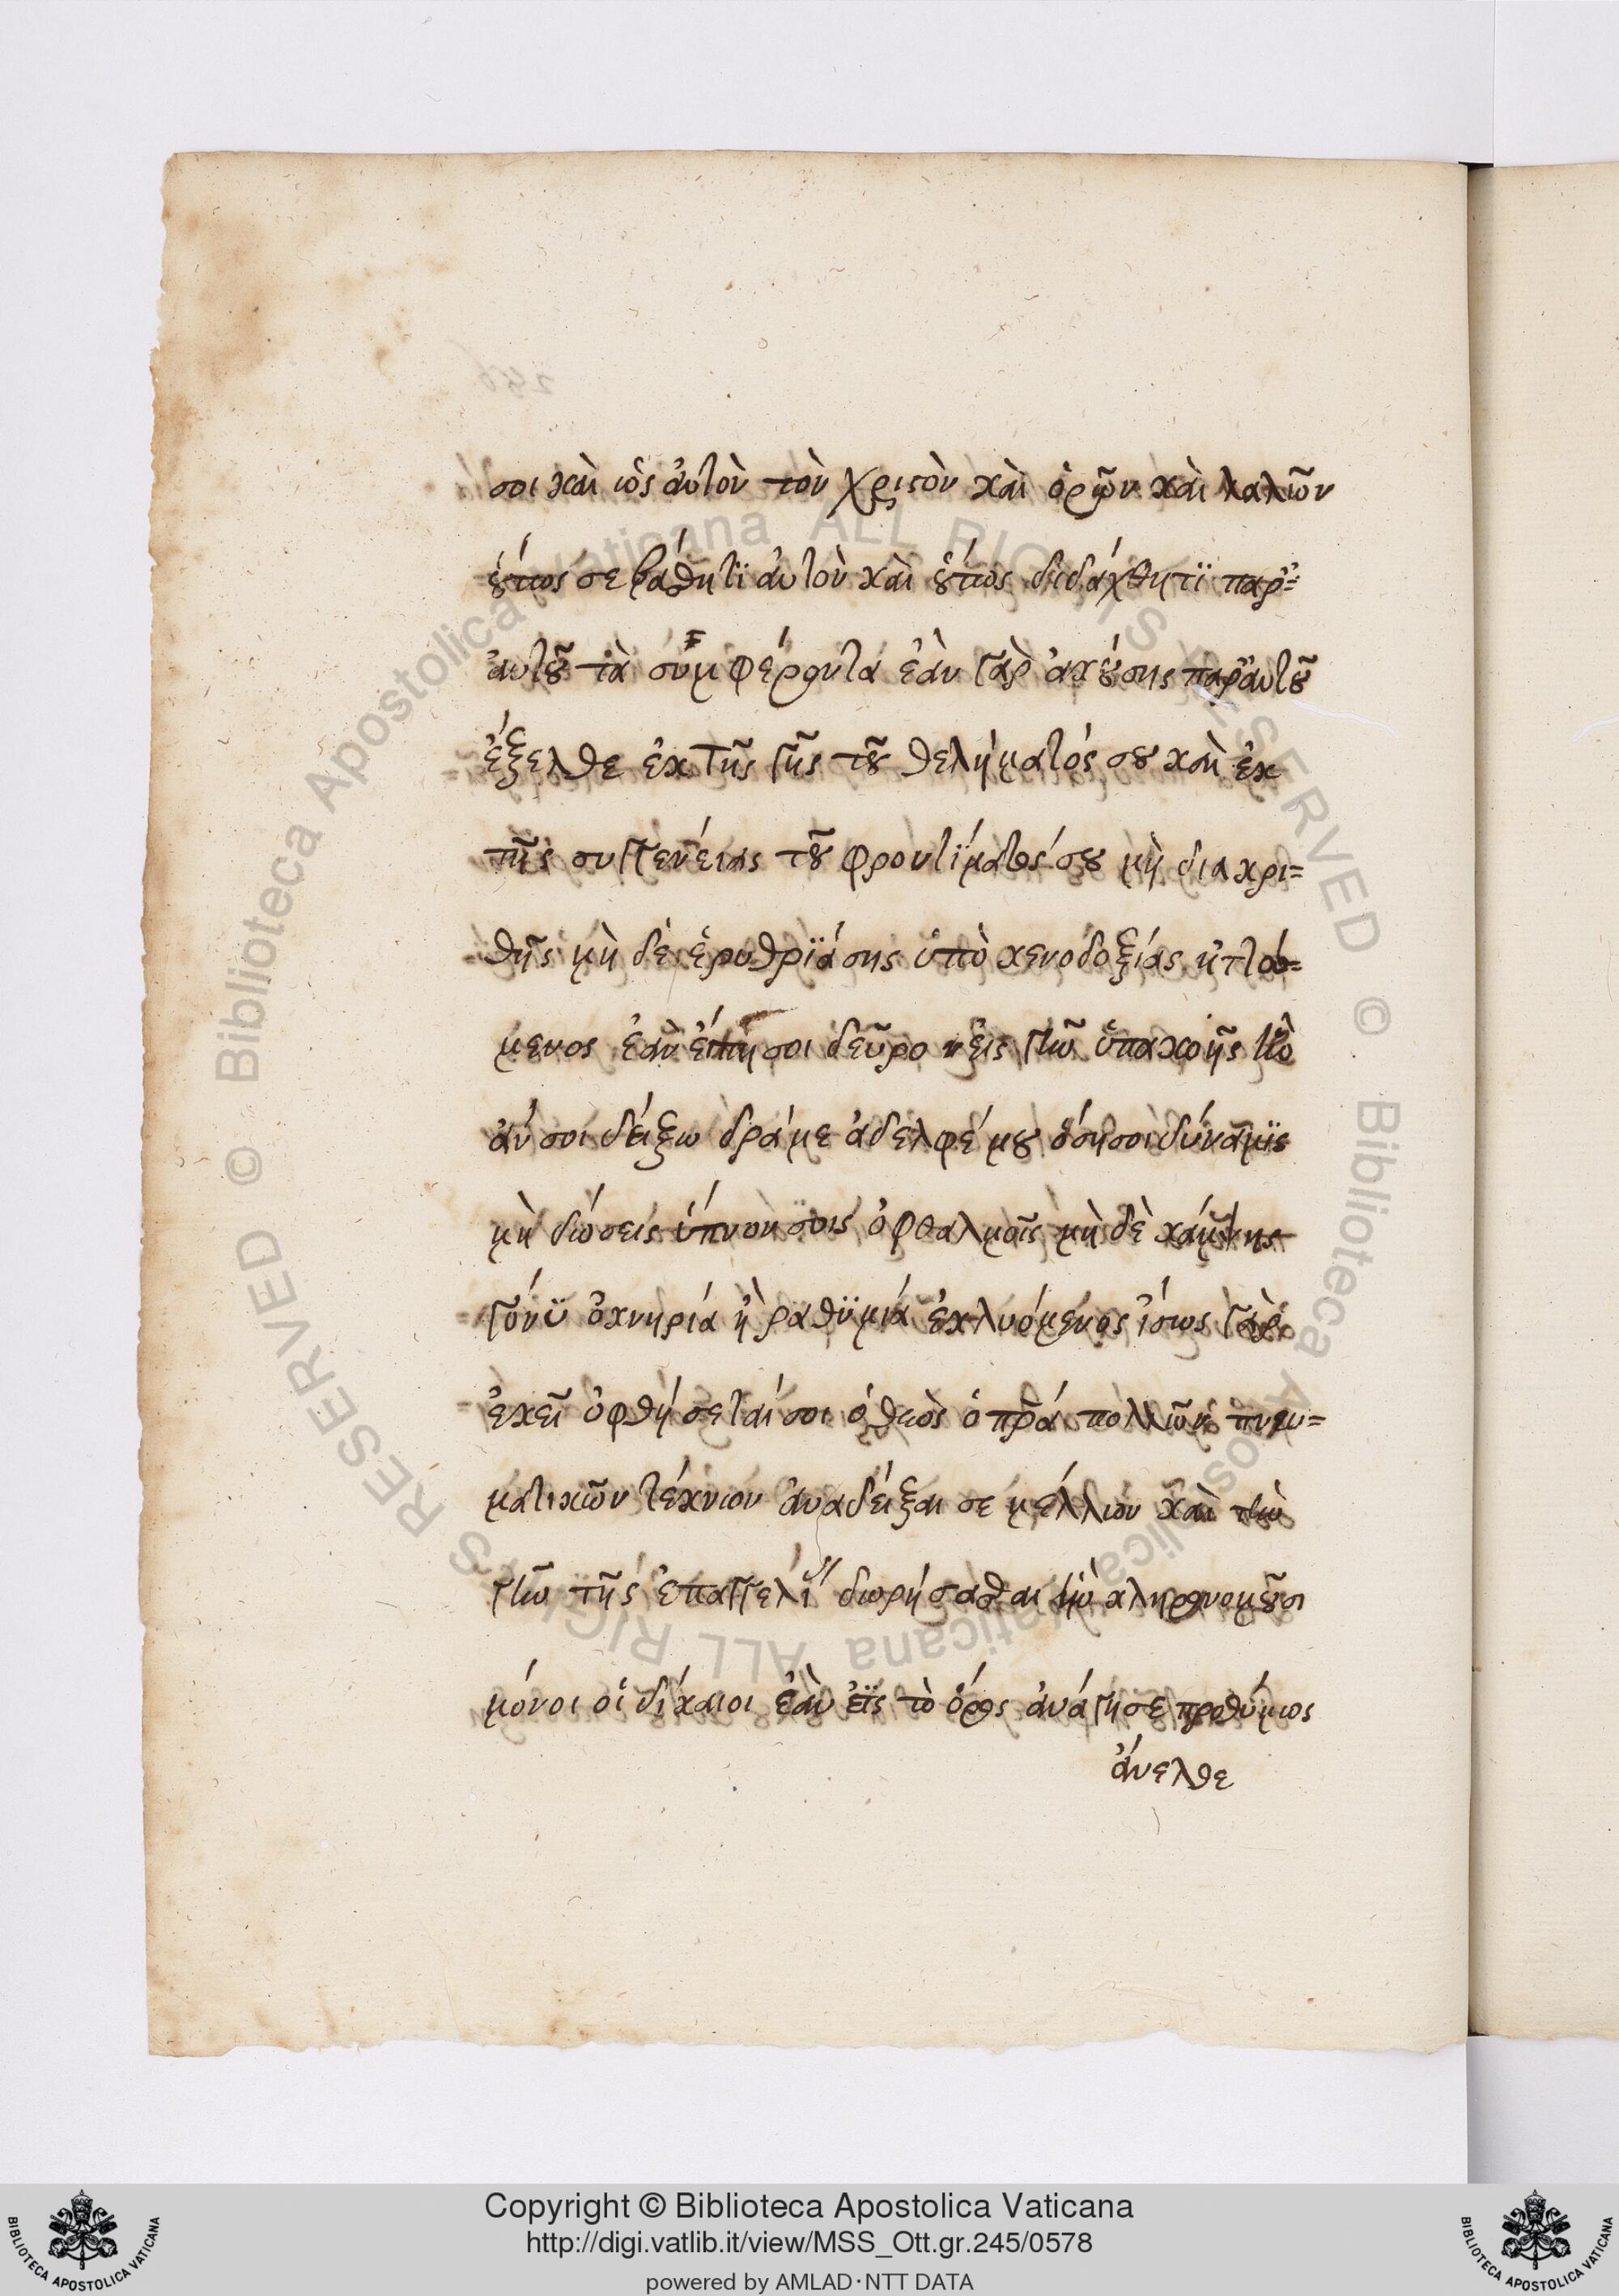 σοι καὶ ὡς ἀυτὸν τὸν χριστὸν καὶ ὁρῶν καὶ λαλῶν
ὅυτως σεβάσθητϊ ἀυτὸν καὶ ὅυτως διδάχθητϊ παρ'=
ἀυτοῦ τὰ συμφέροντα ἐὰν γὰρ ἀκούσης παρ' ἀυτοῦ
ἔξελθε ἐκ τῆς γῆς τοῦ θελήματός σου καὶ ἐκ
τῆς συγγενείας τοῦ φροντίματός σου μὴ διακρι=
θῆς μὴ δὲ ἐρυθρϊάσης ὑπὸ κενοδοξίας ἡττού=
μενος ἐὰν ἔιπη σοι δεῦρο εἰς γῆν ὑπακοῆς ἣν
ἄν σοι δείξω δράμε ἀδελφέ μου ὅση σοι δύναμϊς
μὴ δώσεις ὕπνον σοῖς ὀφθαλμοῖς μὴ δὲ κάμψης
γόνϋ ὀκνηρία ἢ ραθϋμία ἐκλυόμενος ἴσως γὰρ
ἐκεῖ ὀφθήσεταί σοι ὁ θεὸς ὁ πρα πολλῶν πνευ=
ματικῶν τέκνων ἀναδείξαι σε μέλλων καὶ τὴν
γῆν τῆς ἐπαγγελί" δωρήσασθαι ἣν κληρονομοῦσι
μόνοι οἱ δίκαιοι ἐὰν εἰς τὸ ὄρος ἀνάγη σε προθύμως
ἄνελθε
Copyright © Biblioteca Apostolica Vaticana
http://digi.vatlib.it/view/MSS_Ott.gr.245/0578
powered by AMLAD·NTT DATA